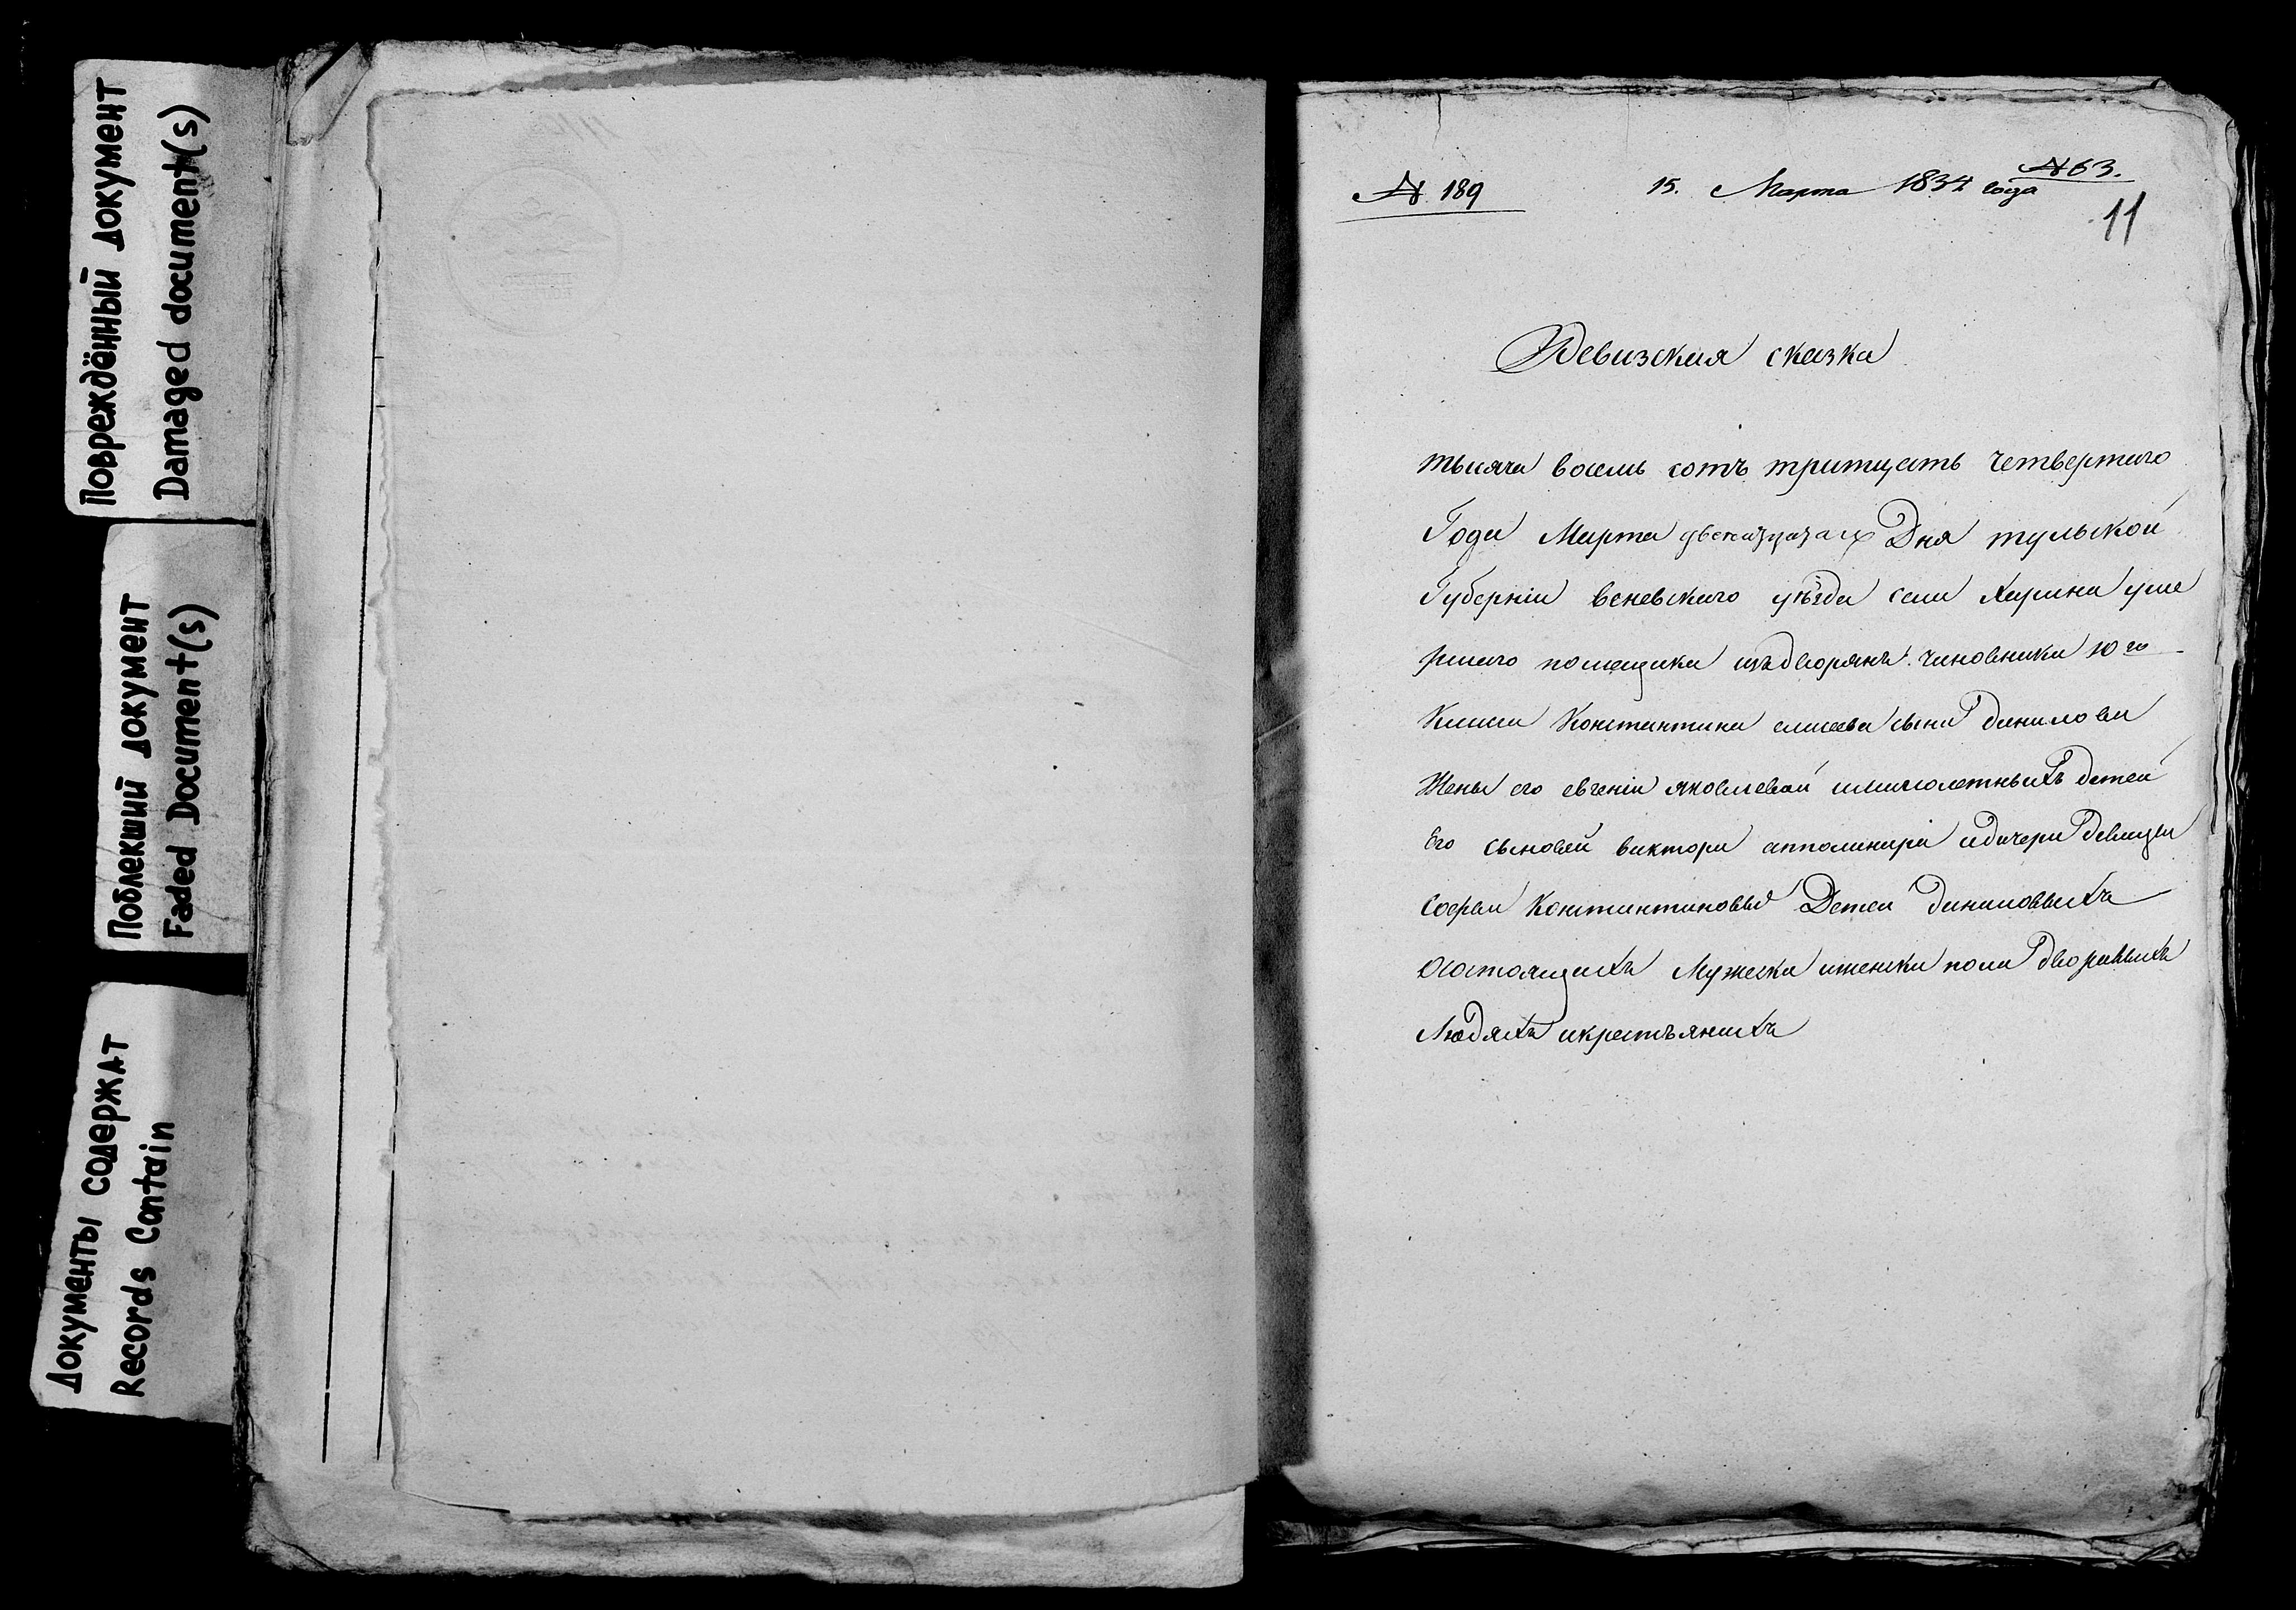 Повреждённый документ
Damaged document(s)
Поблекший документ
Faded Document(s)
Документы содержат
Records Contain
№ 63.
№ 189
15. Марта 1834 года
11
Ревизская сказка
тысяча восемь сотъ тритцать четвертаго
Года Марта Дня тульской
Губерніи веневского уѣзда села Харина уме
ршаго помещика издворянъ чиновника 10го
Класа Константина елисеева сына данилова
Жены его евгеніи яковлевой ималолетныхъ детей
Его сыновей виктора апполинарія идочери девицы
Софьи Константиновы Детей даниловыхъ
Осостоящихъ Мужеска иженска пола дворовыхъ
Людяхъ икрестьянахъ